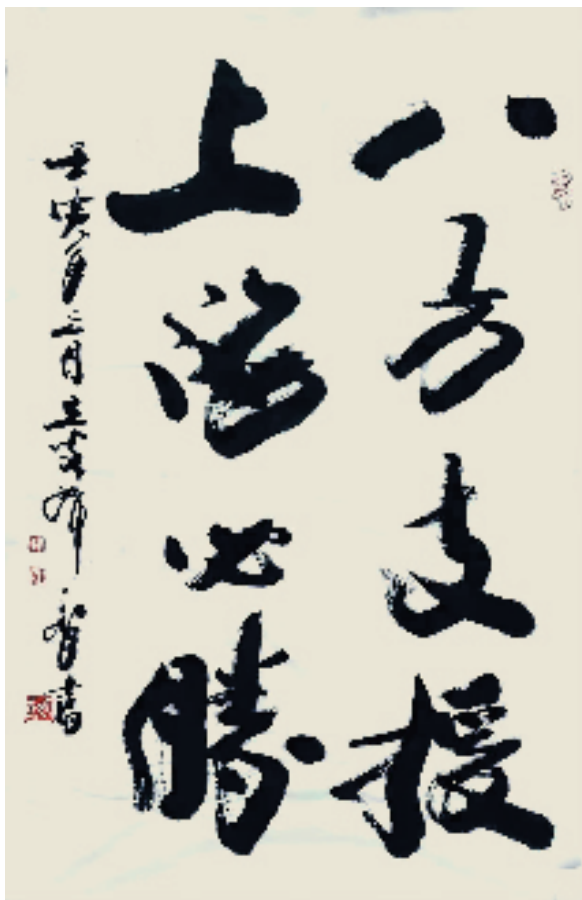 八方支援
上海必勝
壬寅年三月 書